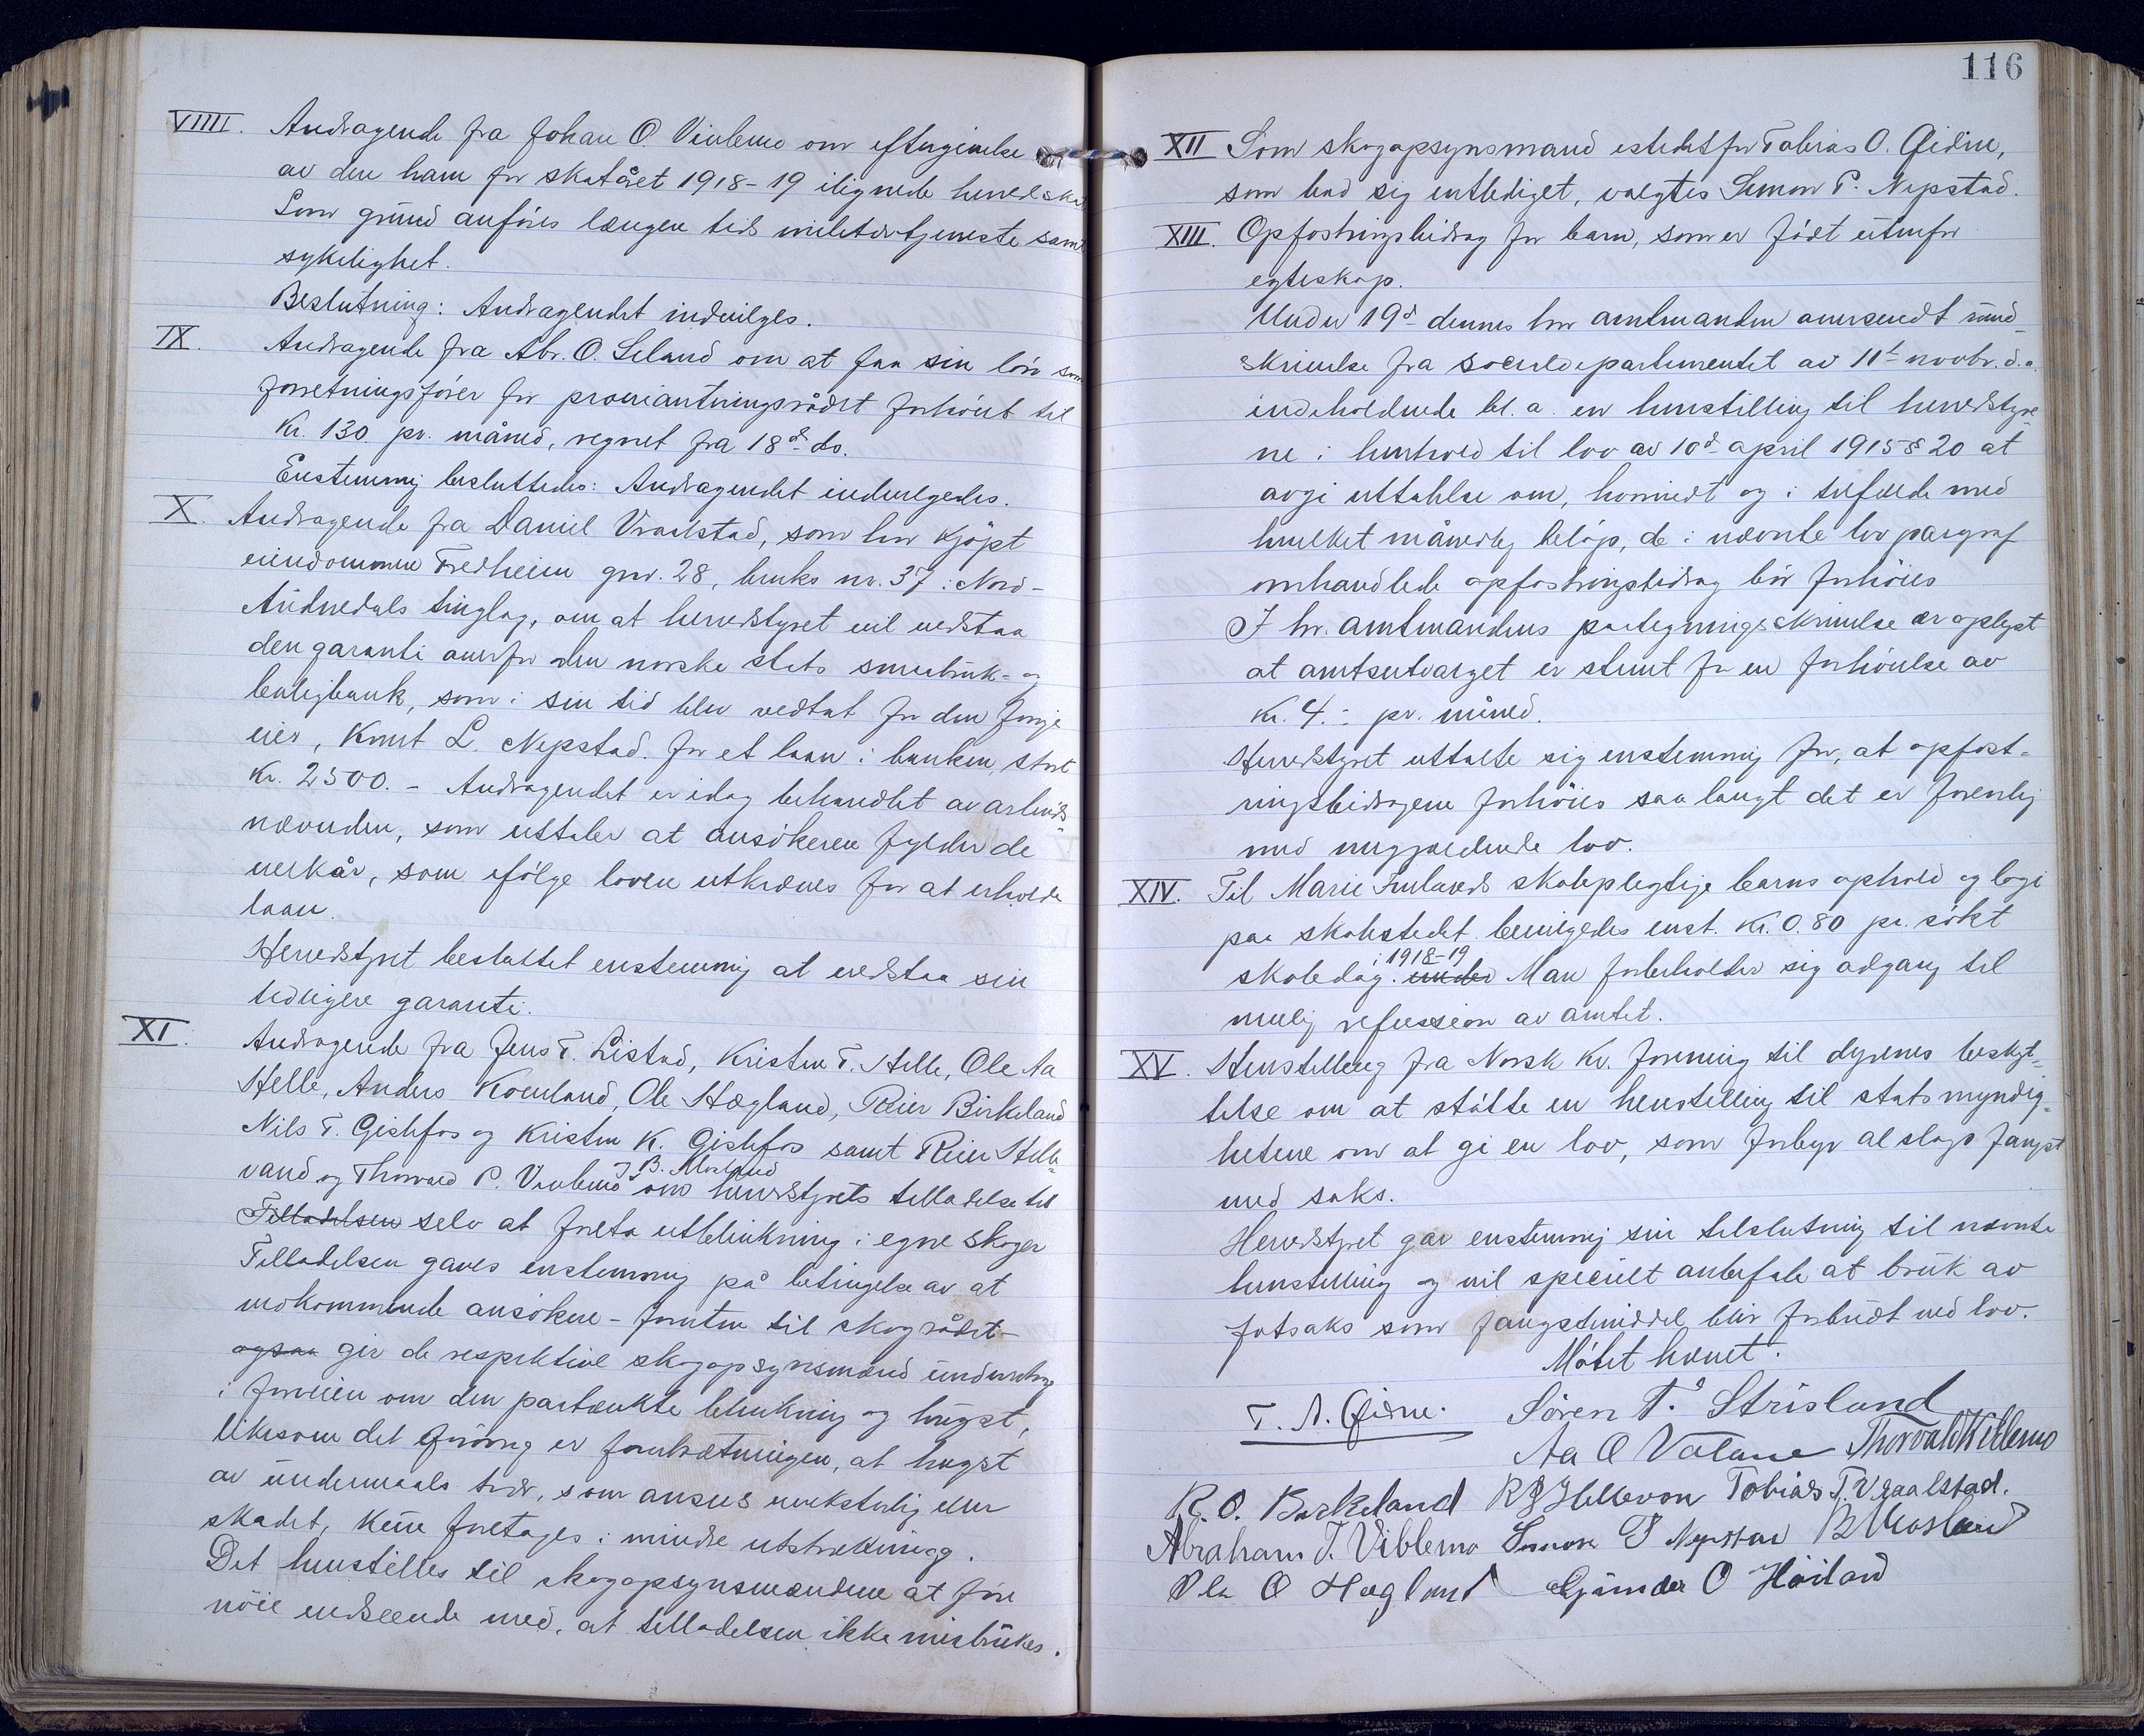 VIIII. Andragende fra Johan O. Viblemo om eftergivelse
av den ham for skatåret 1918-19 ilignede herredsska
Som grund anföres længere tids militærtjeneste samt
sykelighet.
Beslutning: Andragendet indvilges.
IX. Andragende fra Abr. O. Seland om at faa sin lön som
forretningsförer for provianteringsrådet forhöiet til
Kr. 130 pr. måned, regnet fra 18d ds.
Enstemmig besluttedes: Andragendet indvilgedes.
X. Andragende fra Daniel Vraalstad, som har kjöpt
eiendommen Fredheim gnr. 28, bruks nr. 37 i Nord-
Audnedals tinglag, om at herredstyret vil vedstaa
den garanti overfor den norske stats smaabruk- og
boligbank, som i sin tid blev vedtat for den forrige
eier, Knut L. Nepstad. for et laan i banken, stort
Kr. 2500. - Andragendet er idag behandlet av arbeids-
nævnden, som uttaler at ansökeren fylder de
verkår, som ifölge loven utkræves for at erholde
laan.
Herredstyret besluttet enstemmig at vedstaa sin
tidligere garanti.
XI. Andragende fra Jens T. Listad, Kristen T. Helle, Ole Aa
Helle, Anders Kvenland, Ole Hægland, Reier Birkeland
Nils T. Gislefos og Kristen K. Gislefos samt Reier Helle-
vand og Thorvald P. Viblemo J B. Mosland om herredstyrets tilladelse til
Tilladelsen selv at foreta utblinkning i egne skoger
Tilladelsen gaves enstemmig på betingelse av at
vedkommende ansökere - foruten til skogrådet -
ogsaa gir de respektive skogopsynsmænd underretning
i forveien om den paatænkte blinkning og hugst,
likesom det forövrig er forutsætningen, at hugst
av undermaals trær, som ansees vekstudelig eller
skadet, kun foretages i mindre utstrækning.
Det henstilles til skogopsynsmændene at före
nöie endseende med, at tilladelsen ikke misbrukes.
116
XII Som skogopsynsmand istedetfor Tobias O. Øidne,
som bad sig entlediget, valgtes Simon P. Nepstad.
XIII. Opfostringsbidrag for barn, som er födt utenfor
egteskap.
Under 19d dennes har amtmanden oversendt rund-
skrivelse fra socialdepartementet av 11te novbr. d.a.
indeholdende bl. a. en henstilling til herredstyre-
ne i henhold til lov av 10d april 1915 § 20 at
avgi uttalelse om, hvorvidt og i tilfælde med
hvilket månedlig belöp, de i nævnte lov paragraf
omhandlede opfostringsbidrag bör forhöies
I hr. amtmandens paategningsskrivelse er oplyst
at amtsutvalget er stemt for en forhöielse av
Kr. 4.- pr. måned.
Herredstyret uttalte sig enstemmig for, at opfost-
ringsbidragene forhöies saa langt det er forenlig
med nugjældende lov.
XIV. Til Marie skolepligtige barns ophold og logi
paa skolestedet bevilgedes enst. Kr. 0.80 pr. sökt
skoledag i 1918-19. under Man forbeholder sig adgang til
mulig refusion av amtet.
XV. Henstilling fra Norsk Kv. forening til dyrenes beskyt-
telse om at stötte en henstilling til statsmyndig-
hetene om at gi en lov, som forbyr al slags fangst
med saks.
Herredstyret gav enstemmig sin tilslutning til nævnte
henstilling og vil specielt anbefale at bruk av
fotsaks som fangstmiddel blir forbudt ved lov.
Mötet hævet.
T. A. Øidne. Sören T. Strisland
Aa O Valand Thorvald Viblemo
R. O. Birkeland R J Hellevan Tobias T. Vraalstad.
Abraham T. Viblemo Simon P Nepstad B Mosland
Ole O Hægland Gunder O Höiland